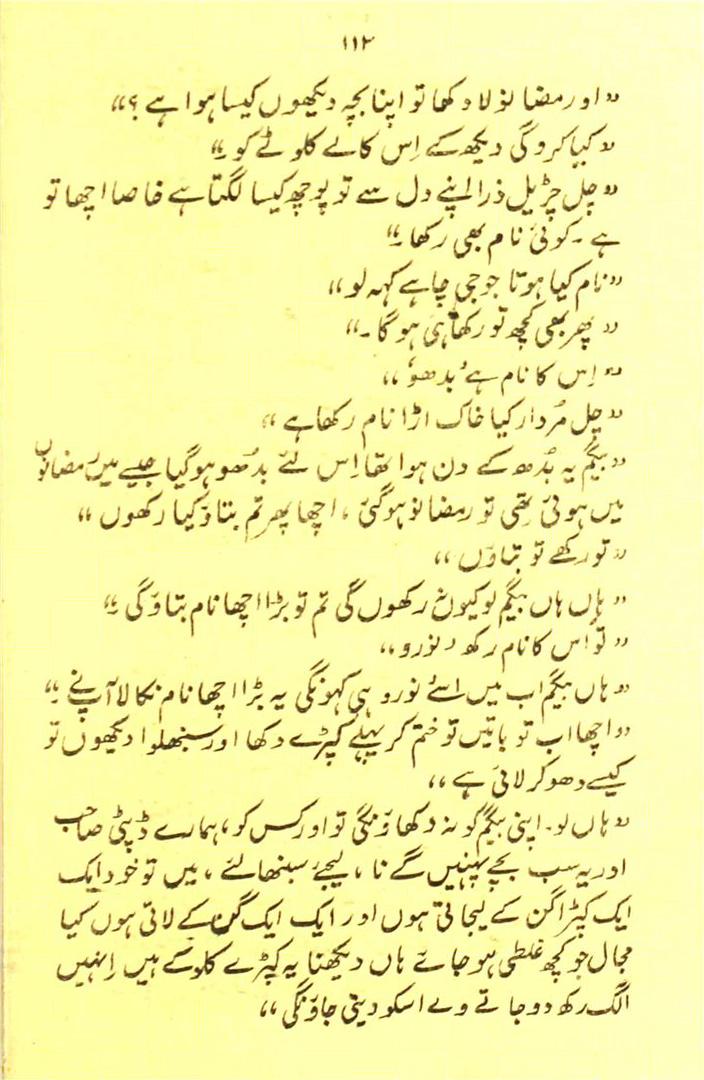 ۱۱۳
”اور رمضانو لا دکھا تو اپنا بچہ دیکھوں کیسا ہوا ہے ؟“
”کیا کروگی دیکھ کے اِس کالے کلوٹے کو ۔“
”چل چڑیل ذرا اپنے دل سے تو پوچھ کیسا لگتا ہے خاصا اچھا تو
ہے ۔ کوئی نام بھی رکھا ۔“
”نام کیا ہوتا جو جی چاہے کہہ لو“
”پھر بھی کچھ تو رکھا ہی ہوگا ۔“
”اِس کا نام ہے ’بدھو‘“
”چل مُردار کیا خاک اڑا نام رکھا ہے“
”بیگم یہ بُدھ کے دن ہوا تھا اِس لئے بدھو ہوگیا جیسے میں رمضانوں
میں ہوئی تھی تو رمضانو ہوگئی ، اچھا پھر تم بتاؤ کیا رکھوں“
”تو رکھے تو بتاؤں“
”ہاں ہاں بیگم لو کیوں رکھوں گی تم تو بڑا اچھا نام بتاؤگی ۔“
”تو اس کا نام رکھ ’نورو‘“
”ہاں بیگم اب میں اسے نورو ہی کہونگی یہ بڑا اچھا نام نکالا آپ نے ۔“
”اچھا اب تو باتیں تو ختم کر پہلے کپڑے دکھا اور سنبھلوا دیکھوں تو
کیسے دھو کر لائی ہے“
”ہاں لو ۔ اپنی بیگم کو نہ دکھاؤنگی تو اور کس کو ، ہمارے ڈپٹی صاحب
اور یہ سب بچے پہنیں گے نا ، لیجئے سبنھالئے ، میں تو خود ایک
ایک کپڑا گن کے لیجاتی ہوں اور ایک ایک گن کے لاتی ہوں کیا
مجال جو کچھ غلطی ہو جائے ہاں دیکھنا یہ کپڑے کلو کے ہیں اِنہیں
الگ رکھ دو جاتے وے اسکو دیتی جاؤنگی“